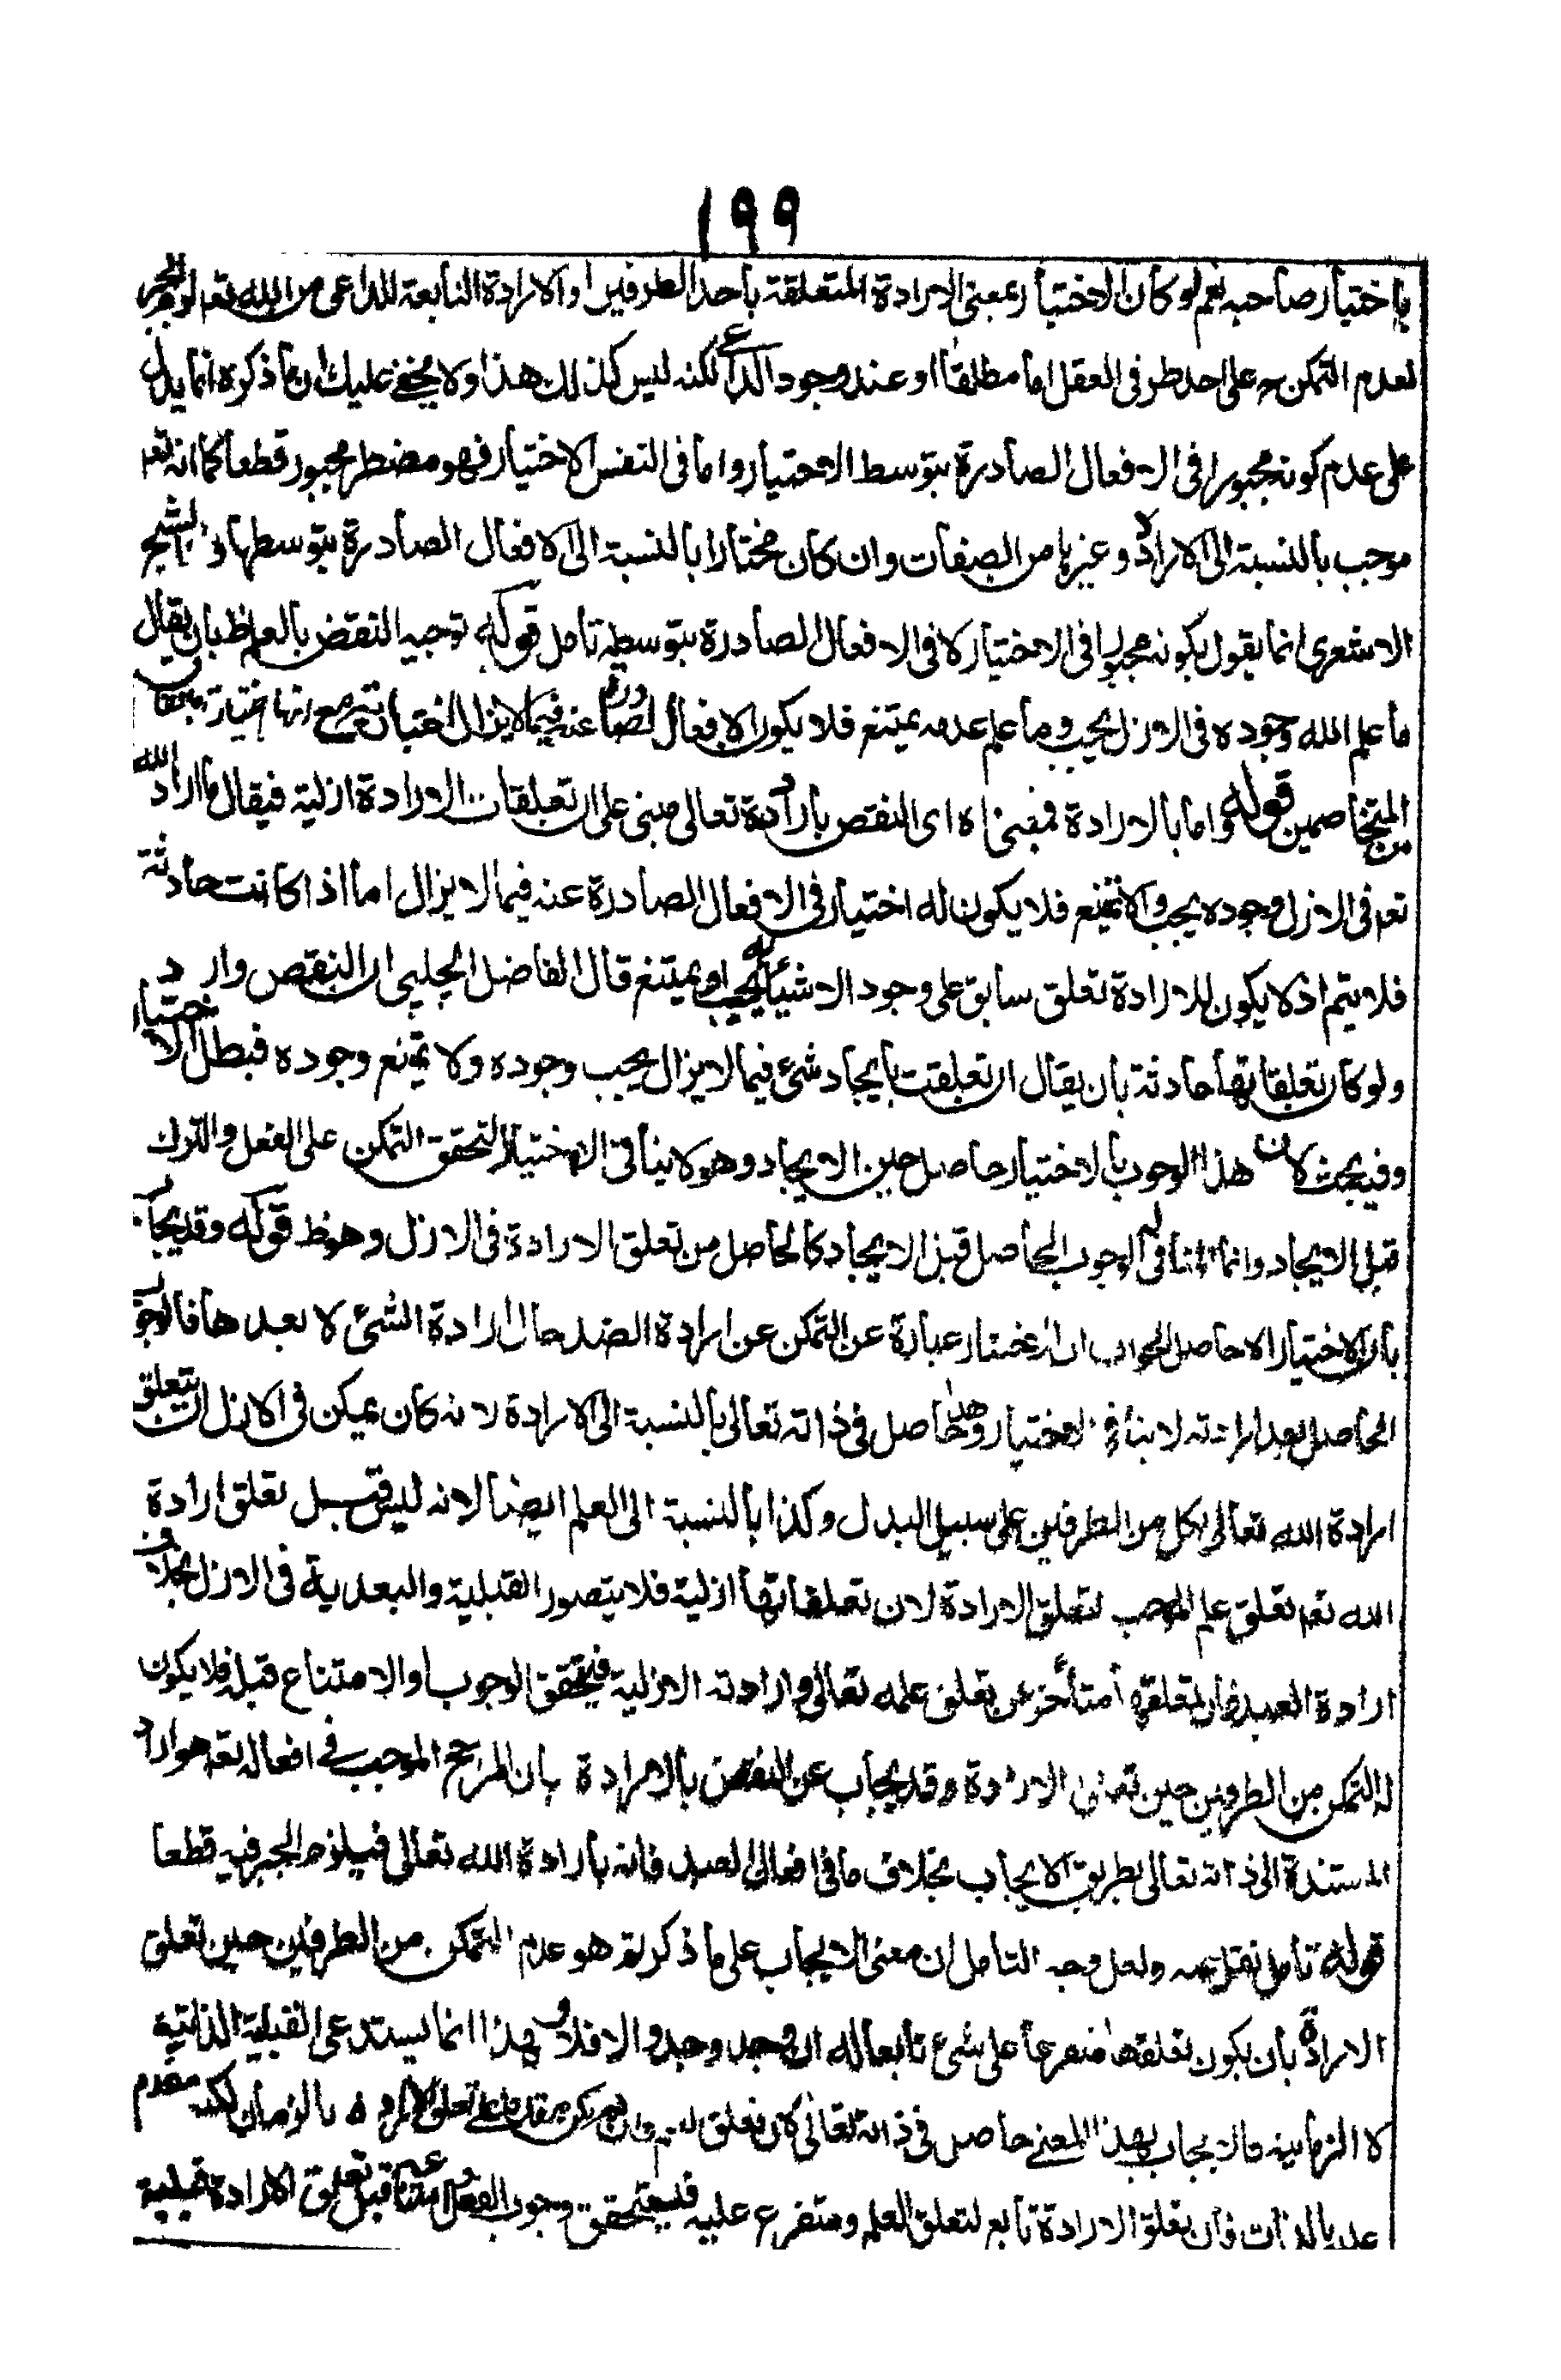 ١٩٩
باختيار صاحبه نعم لو كان الاختيار بمعنى الارادة المتعلقة باحد الطرفين او الارادة التابعة للداعى من الله تعم لزم الجبر
لعدم التمكن ح على احد طرفى العقل اما مطلقا او عند وجود الداعى لكنه ليس كذلك هذا ولا يخفى عليك ان ما ذكره انما يدل
على عدم كونه مجبورا فى الافعال الصادرة بتوسط الاختيار واما فى النفس الاختيار فهو مضطر مجبور قطعا كما انه تعم
موجب بالنسبة الى الارادة وغيرها من الصفات وان كان مختارا بالنسبة الى الافعال الصادرة بتوسطها والشيخ
الاشعرى انما يقول بكونه مجبورا فى الاختيار لا فى الافعال الصادرة بتوسطه تامل قوله توجيه النقض بالعلم ظ بان يقال
ما علم الله وجوده فى الازل يجب وما علم عدمه يمتنع فلا يكون الافعال الصادرة عنه فيما لايزال اختيارية مع انها اختيارية باتفاق
المتخاصمين قوله واما بالارادة فمعناه اى النقض بارادة تعالى مبنى على ان تعلقات الارادة ازلية فيقال ما اراد الله
تعم فى الازل وجوده يجب والا يمتنع فلا يكون له اختيار فى الافعال الصادرة عنه فيما لايزال اما اذا كانت حادثة
فلا يتم اذ لا يكون للارادة تعلق سابق على وجود الاشياء يجب او يمتنع قال الفاضل الچلپى ان النقض وارد
ولو كان تعلقاتها حادثة بان يقال ان تعلقت بايجاد شئ فيما لايزال يجب وجوده ولا يمتنع وجوده فبطل الاختيار
وفيه بحث لان هذا الوجوب بالاختيار حاصل حين الايجاد وهو لا ينافى الاختيار لتحقق التمكن على الفعل والترك
قبل الايجاد وانما المنافى له الوجوب الحاصل قبل الايجاد كالحاصل من تعلق الارادة فى الازل وهو ظ قوله وقد يجاب
بان الاختيار الاحاصل الجواب ان الاختيار عبارة عن التمكن عن ارادة الضد حال ارادة الشئ لا بعدها فالوجوب
الحاصل بعد ارادته لا ينافى الاختيار وهذا حاصل فى ذاته تعالى بالنسبة الى الارادة لانه كان يمكن فى الازل ان يتعلق
ارادة الله تعالى بكل من الطرفين على سبيل البدل وكذا بالنسبة الى العلم ايضا لانه ليس قبل تعلق ارادة
الله تعم تعلق علم الموجب لتعلق الارادة لان تعلقاتها ازلية فلا يتصور القبلية والبعدية فى الازل بخلاف
ارادة العبد فان تعلقها متأخر عن تعلق علمه تعالى وارادته الازلية فيتحقق الوجوب او الامتناع قبله فلا يكون
له التمكن من الطرفين حين تعلق الارادة وقد يجاب عن النقض بالارادة بان المرجح الموجب فى افعاله تعم هو ارادته
المستندة الى ذاته تعالى بطريق الايجاب بخلاف ما فى افعال العبد فانه بارادة الله تعالى فيلزم الجبر فيه قطعا
قوله تامل نقل عنه ولعل وجه التامل ان معنى الايجاب على ما ذكرتم هو عدم التمكن من الطرفين حين تعلق
الارادة بان يكون تعلقها متفرعا على شئ تابعا له ان وجد وجد والا فلا وهذا انما يستدعى القبلية الذاتية
لا الزمانية فالايجاب بهذا المعنى حاصل فى ذاته تعالى لان تعلق وان لم يكن مقدما على تعلق الارادة بالزمان لكنه مقدم
عليه بالذات فان تعلق الارادة تابع لتعلق العلم ومتفرع عليه فيتحقق وجوب الفعل قبل تعلق الارادة قبلية